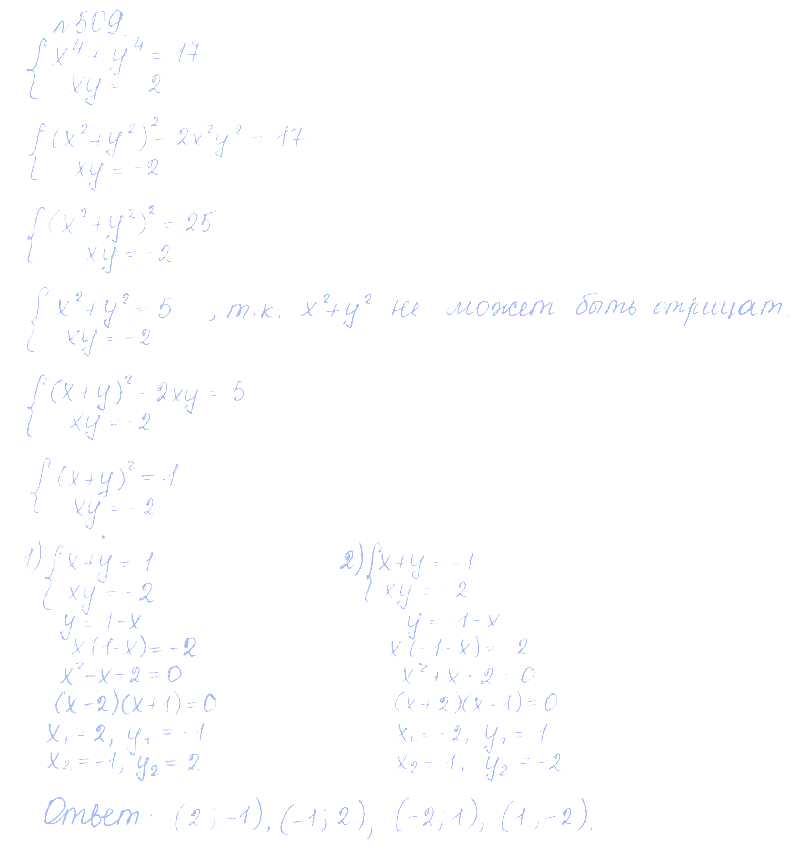 №509.
x⁴ + y⁴ = 17
xy = 2
(x² + y²)² - 2x²y² = 17
xy = -2
(x² + y²)² = 25
xy = -2
x² + y² = 5 , т.к. x² + y² не может быть отрицат.
xy = -2
(x + y)² - 2xy = 5
xy = -2
(x + y)² = 1
xy = -2
1) x + y = 1
xy = -2
y = 1 - x
x(1 - x) = -2
x² - x - 2 = 0
(x - 2)(x + 1) = 0
x₁ = 2, y₁ = -1
x₂ = -1, y₂ = 2
2) x + y = -1
xy = -2
y = -1 - x
x(-1 - x) = 2
x² + x - 2 = 0
(x + 2)(x - 1) = 0
x₁ = -2, y₁ = 1
x₂ = 1, y₂ = -2
Ответ: (2; -1), (-1; 2), (-2; 1), (1; -2).